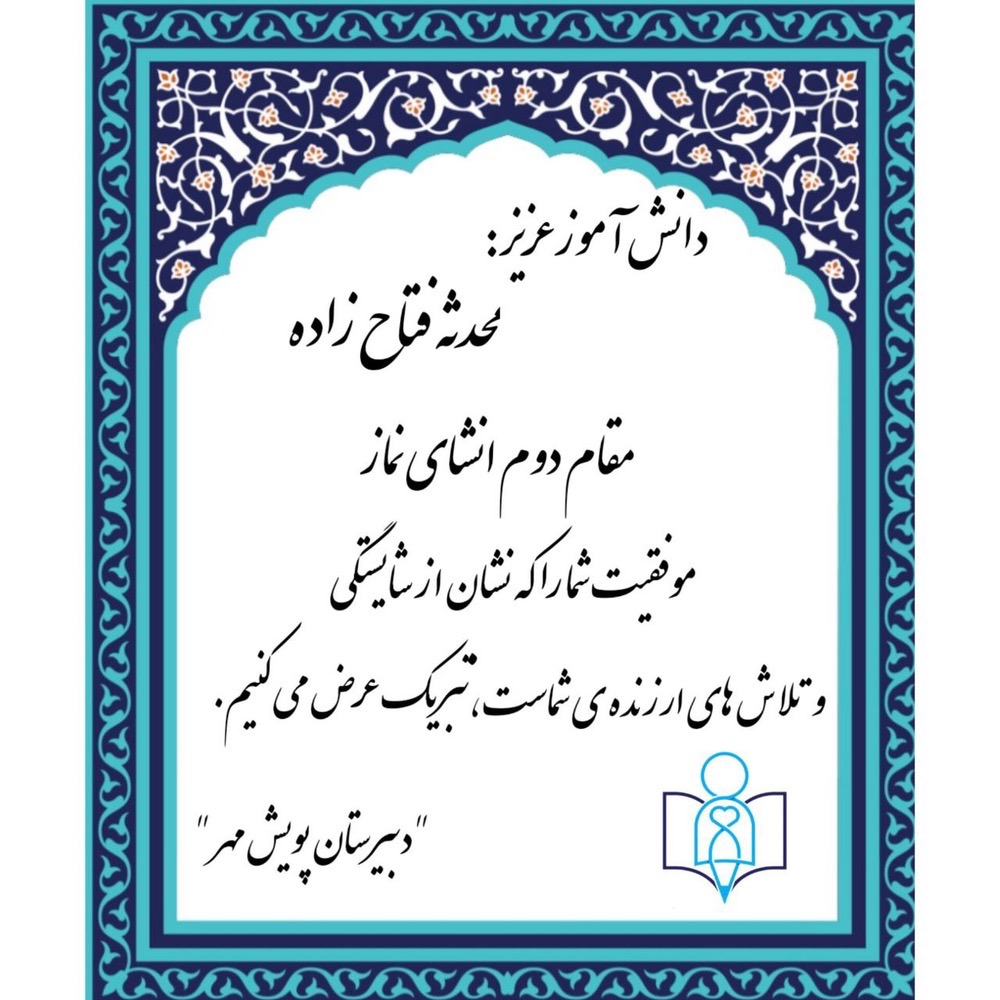 دانش آموز عزیز:
محدثه فتاح زاده
مقام دوم انشای نماز
موفقیت شما را که نشان از شایستگی
و تلاش های ارزنده ی شماست، تبریک عرض می کنیم.
"دبیرستان پویش مهر"